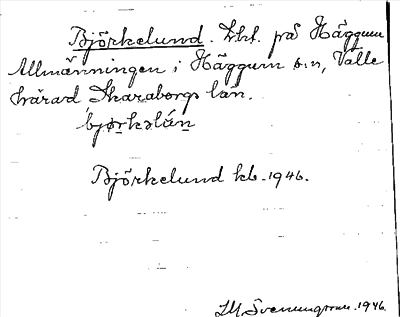 Björkelund. Lht. på Häggum
Allmänningen i Häggum s:n, Valle
härad, Skaraborgs län.
bjørkəlún
Björkelund kb. 1946.
Svenungsson. 1946.